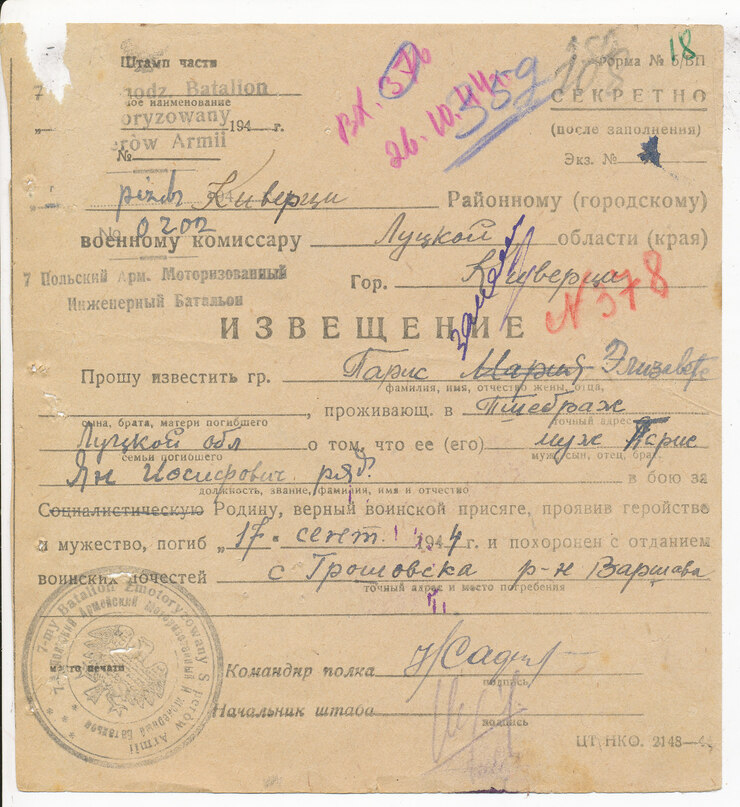 Штамп части
18
Форма № 6/ВП
7 hodz. Batalion
вх. 376
389
188
ное наименование
СЕКРЕТНО
oryzowany
„ 194 г.
26.10.44 г.
(после заполнения)
erów Armii
№
Экз. №
Киверци Районному (городскому)
№ 0202
военному комиссару Луцкой области (края)
7 Польский Арм. Моторизованный
Гор. Киверци
Инженерный Батальон
N 378
ИЗВЕЩЕНИЕ
Прошу известить гр. Парис Мария Элизабета
фамилия, имя, отчество жены, отца,
, проживающ. в
сына, брата, матери погибшего
точный адрес
Луцкой обл о том, что ее (его) муж Парис
семьи погибшего
муж, сын, отец, брат
Ян Иосифович ряд. в бою за
должность, звание, фамилия, имя и отчество
Социалистическую Родину, верный воинской присяге, проявив геройство
и мужество, погиб „17“ сент. 1944 г. и похоронен с отданием
воинских почестей с Грошовска р-н Варшава
точный адрес и место погребения
7-my Batalion Zmotoryzowany Saperów Armii
место печати
Командир полка
подпись
Начальник штаба
подпись
ЦТ НКО. 2148—4